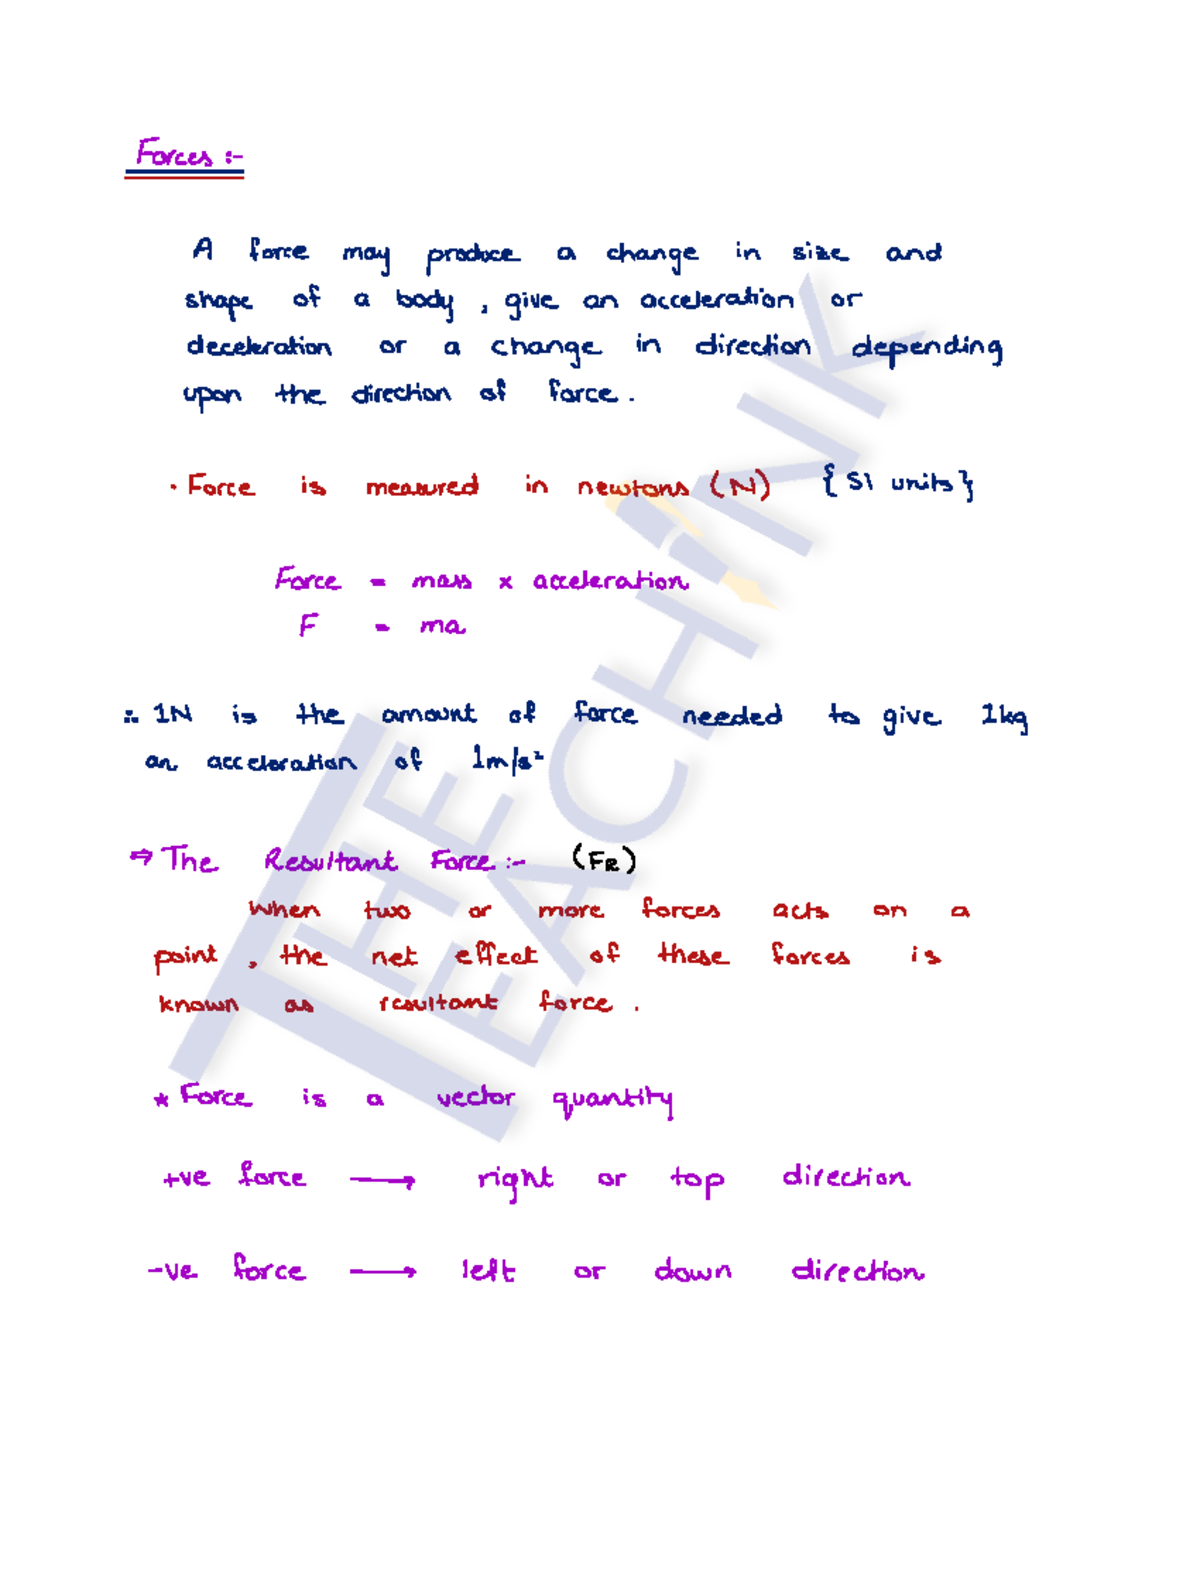 Forces :-
A force may produce a change in size and
shape of a body , give an acceleration or
deceleration or a change in direction depending
upon the direction of force .
· Force is measured in newtons (N) {SI units}
Force = mass x acceleration
F = ma
∴ 1N is the amount of force needed to give 1kg
an acceleration of 1m/s²
⇒ The Resultant Force :- (FR)
When two or more forces acts on a
point , the net effect of these forces is
known as resultant force .
* Force is a vector quantity
+ve force ⟶ right or top direction
-ve force ⟶ left or down direction
THE
TEACH
INK